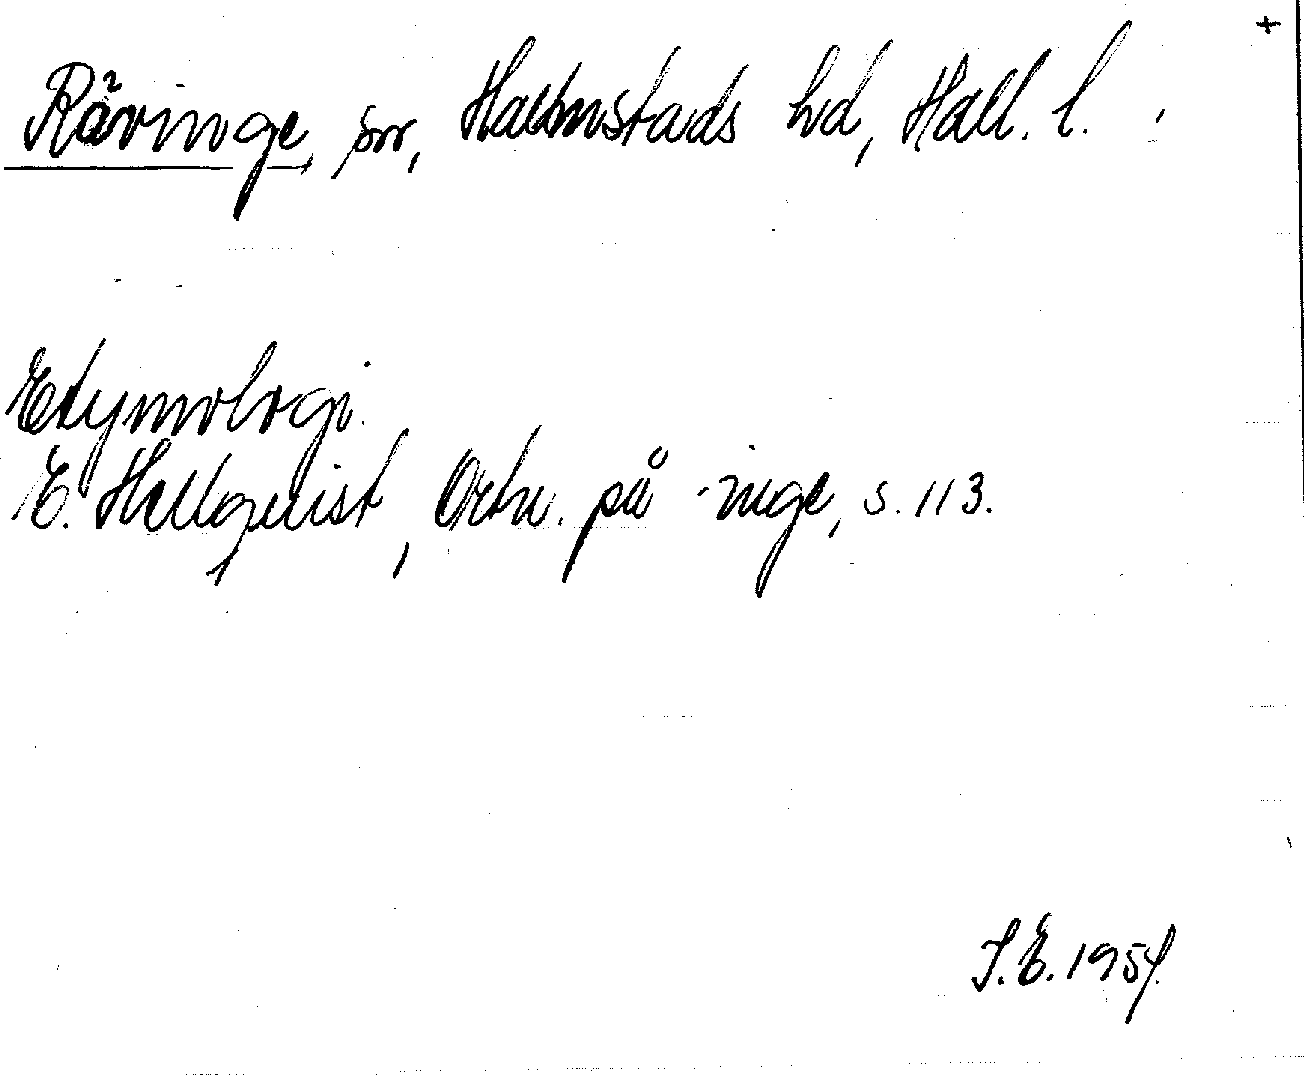 +
Råvinge, sn, Halmstads hd, Hall. l.
Etymologi.
E. Hellquist, Ortn. på -inge, s. 113.
S.E. 1954.